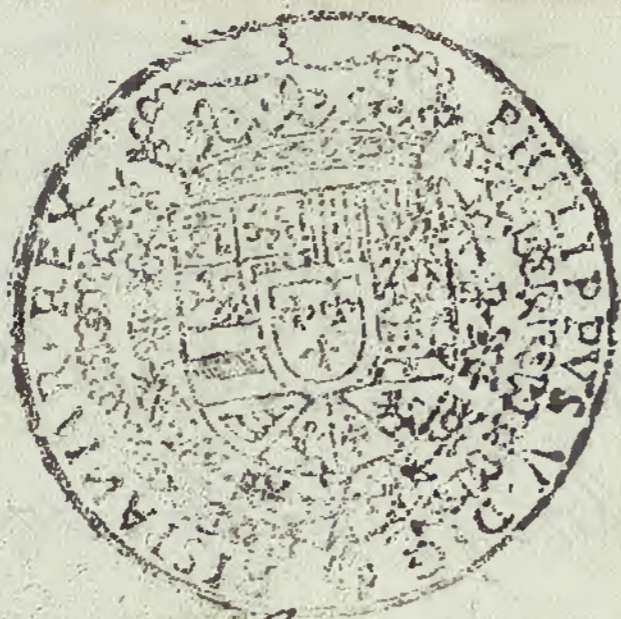 PHILIPPVS·V·D·G·
ISPANIAR·REX